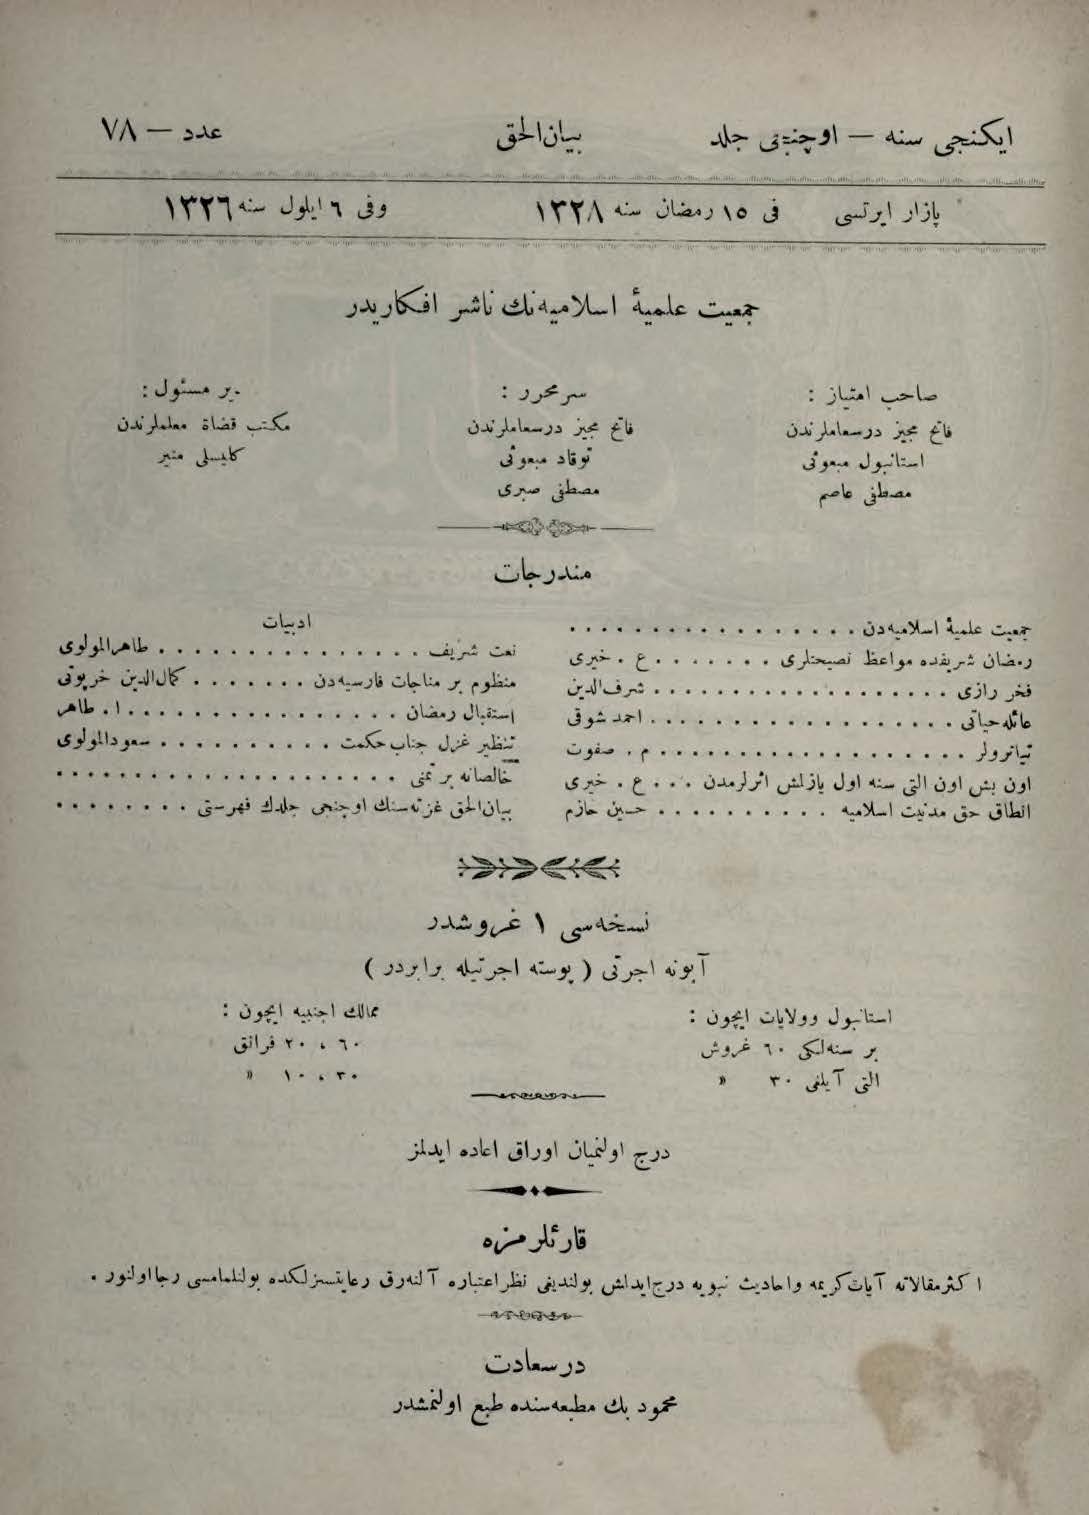 ایكنجی سنه — اوچنجی جلد بیان‌الحق عدد — ۷۸
پازار ایرتسی فی ۱۵ رمضان سنه ۱۳۲۸ وفی ۶ ایلول سنه ۱۳۲۶
جمعیت علمیهٔ اسلامیه‌نك ناشر افكاریدر
صاحب امتیاز :
فاتح مجیز درسعاملرندن
استانبول مبعوثی
مصطفی عاصم
سرمحرر :
فاتح مجیز درسعاملرندن
توقاد مبعوثی
مصطفی صبری
مدیر مسئول :
مكتب قضاة معلملرندن
كلیسلی منیر
مندرجات
جمعیت علمیهٔ اسلامیه‌دن . . . . . . . . . . . . . . . . .
رمضان شریفده مواعظ نصیحتلری . . . . . . . ع . خیری
فخر رازی . . . . . . . . . . . . . . . . . شرف‌الدین
عائله‌حیاتی . . . . . . . . . . . . . . . . . احمد شوقی
تیاترولر . . . . . . . . . . . . . . . . م . صفوت
اون بش اون التی سنه اول یازلمش اثرلرمدن . . . ع . خیری
الطاق حق مدنیت اسلامیه . . . . . . . . . حسین حازم
ادبیات
نعت شریف . . . . . . . . . . . . . طاهرالمولوی
منظوم بر مناجات فارسیه‌دن . . . . . . . كمال‌الدین خرپوتی
استقبال رمضان . . . . . . . . . . . . . . ا . طاهر
تنظیر غزل جناب حكمت . . . . . . . . . . سعودالمولوی
خالصانه بر تمنی . . . . . . . . . . . . . . . . . .
بیان‌الحق غزته‌سنك اوچنجی جلدك فهرستی . . . . . . . .
نسخه‌سی ۱ غروشدر
آبونه اجرتی ( پوسته اجرتیله برابردر )
استانبول وولایات ایچون :
بر سنه‌لكی ۶۰ غروش
التی آیلغی ۳۰ »
ممالك اجنبیه ایچون :
۶۰ ، ۲۰ فرانق
۳۰ ، ۱۰ »
درج اولنمیان اوراق اعاده ایدلمز
قارئلرمزه
اكثرمقالاته آیات‌كریمه واحادیث نبویه درج‌ایدلمش بولندیغی نظر اعتباره آلنه‌رق رعایتسزلكده بولنلمامسی رجااولنور .
درسعادت
محمود بك مطبعه‌سنده طبع اولنمشدر